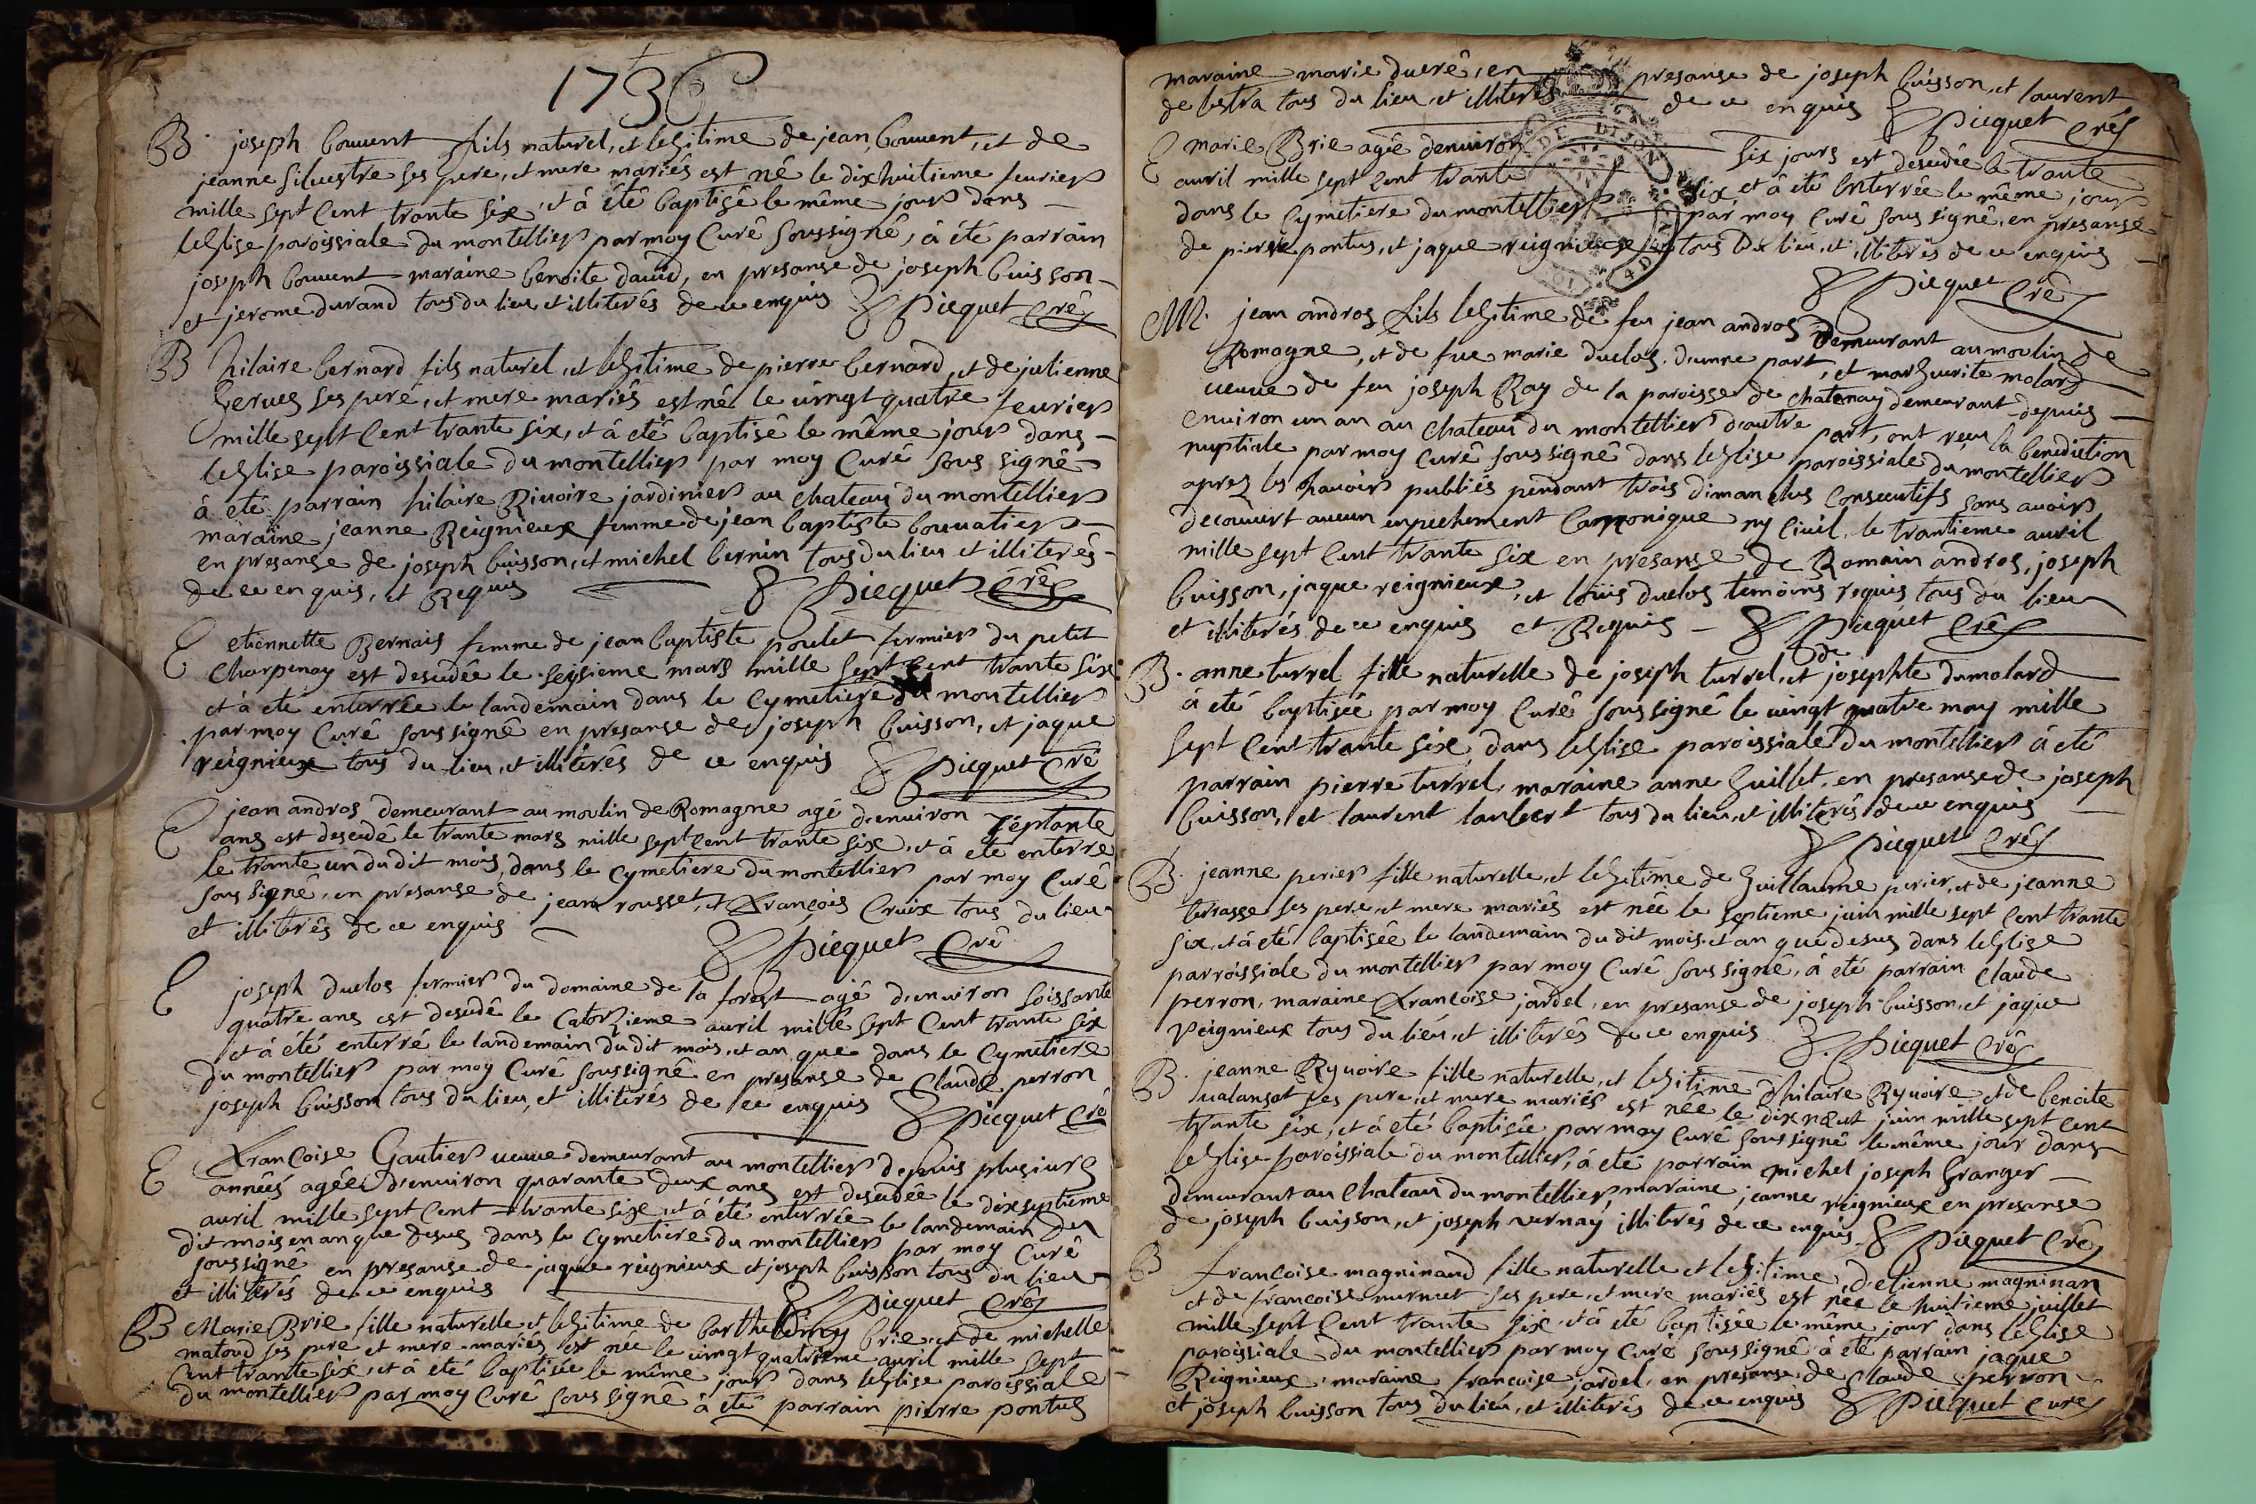 1736
B. joseph bouvent fils naturel, et legitime de jean bouvent, et de
jeanne silvestre ses pere, et mere mariés est né le dixhuitieme fevrier
mille sept cent trante six, et â êté baptisé le même jour dans
leglise paroissiale du montellier par moy Curé soussigné, â êté parrain
joseph bouvent maraine benoite david, en presanse de joseph buisson
et jerome durand tous du lieu et illiterés de ce enquis Picquet Cré
B hilaire bernard fils naturel et legitime de pierre bernard, et de julienne
gerves ses pere, et mere mariés est né le vingt quatre fevrier
mille sept cent trante six, et â êté baptisé le même jour dans
leglise paroissiale du montellier par moy Curé sous signé
â eté parrain hilaire Rivoire jardinier au chateau du montellier
maraine jeanne Reignieux femme de jean baptiste bouvatier
en presanse de joseph buisson, et michel bernin tous du lieu et illiterés
de ce enquis, et Requis Picquet Cré
E etiennette Bernais femme de jean baptiste poulet fermier du petit
Charpenay est desedée le seisieme mars mille sept cent trante six
et â eté enterrée le landemain dans le Cymetiere du montellier
par moy Curé soussigné en presanse de joseph buisson, et jaque
reignieux tous du lieu, et illiterés de ce enquis Picquet Cré
E jean andros demeurant au moulin de Romagne agé d'environ séptante
ans est desedé le trante mars mille sept cent trante six, et â eté enterré
le trante un du dit mois, dans le Cymetiere du montellier par moy Curé
sous signé, en presanse de jean rousset, et françois Cruix tous du lieu
et illiterés de ce enquis Picquet Cré
E joseph duclos fermier du domaine de la forest agé d'environ soissante
quatre ans est desedé le Catorzieme avril mille sept cent trante six
et â êté enterré le landemain du dit mois, et an que dans le Cymetiere
du montellier par moy Curé soussigné en presanse de Claude perron
joseph buisson tous du lieu, et illiterés de ce enquis Picquet Cré
E françoise Gautier veuve demeurant au montellier depuis plusiurs
années agée d'environ quarante deux ans est desedée le dixseptieme
avril mille sept cent trante six, et â êté enterrée le landemain du
dit mois en an que desus dans le Cymetiere du montellier par moy Curé
soussigné en presanse de jaque reignieux et joseph buisson tous du lieu
et illiterés de ce enquis Picquet Cré
B Marie Brie fille naturelle et legitime de barthelemy brie, et de michelle
matoud ses pere et mere mariés est née le vingt quatrieme avril mille sept
cent trante six, et â êté baptisée le même jour dans leglise paroissiale
du montellier par moy Curé sous signé â êté parrain pierre pontus
maraine marie ducré, en presanse de joseph buisson, et laurent
de lestra tous du lieu, et illiterés de ce enquis Picquet Cré
E marie Brie agée denviron six jours est desedée le trante
avril mille sept cent trante six, et â êté enterrée le même jour
dans le Cymetiere du montellier par moy Curé sous signé, en presanse
de pierre pontus, et jaque reignieux tous du lieu, et illiterés de ce enquis
Picquet Cré
M. jean andros fils legitime de feu jean andros demeurant au moulin de
Romagne, et de fue marie duclos d'unne part, et marguerite molard
veuve de feu joseph Ray de la paroisse de chatenay demeurant depuis
environ un an au chateau du montellier d'autre part, ont reçu la benediction
nuptiale par moy Curé soussigné dans leglise paroissiale du montellier
aprez les havoir publiés pendant trois dimanches consecutifs sans avoir
decouvert aucun enpechement Canonique ny Civil le trantieme avril
mille sept cent trante six en presanse de Romain andros, joseph
buisson, jaque reignieux, et loüis duclos temoins requis tous du lieu
et illiterés de ce enquis et Requis Picquet Cré
B. anne turrel fille naturelle de joseph turrel, et de josephte dumolard
â êté baptisée par moy Curé soussigné le vingt quatre may mille
sept cent trante six dans leglise paroissiale du montellier â eté
parrain pierre turrel, maraine anne guillet, en presanse de joseph
buisson, et laurent lanbert tous du lieu, et illiterés de ce enquis
Picquet Cré
B. jeanne perier fille naturelle, et légitime de guillaume perier, et de jeanne
terrasse ses pere, et mere mariés est née le septieme juin mille sept cent trante
six, et â eté baptisée le landemain du dit mois, et an que desus dans leglise
parroissiale du montellier par moy Curé soussigné, â eté parrain Claude
perron, maraine françoise jardel, en presanse de joseph buisson, et jaque
reignieux tous du lieu, et illiterés de ce enquis Picquet Cré
B. jeanne Ryvoire fille naturelle, et legitime d'hilaire Ryvoire et de benoite
valansot ses pere, et mere mariés est née le dix neut juin mille sept cent
trante six, et â eté baptisée par moy Curé soussigné le même jour dans
leglise paroissiale du montellier, â eté parrain michel joseph granger
demeurant au chateau du montellier maraine jeanne reignieux en presanse
de joseph buisson, et joseph vernay illiterés de ce enquis Picquet Cré
B françoise magninand fille naturelle et legitime d'etienne magninan
et de françoise murnet ses pere, et mere mariés est née le huitieme juillet
mille sept cent trante six, et â eté baptisée le même jour dans leglise
paroissiale du montellier par moy Curé soussigné â êté parrain jaque
Reignieux, maraine françoise jardel, en presanse de Claude perron
et joseph buisson tous du lieu, et illiterés de ce enquis Picquet Curé